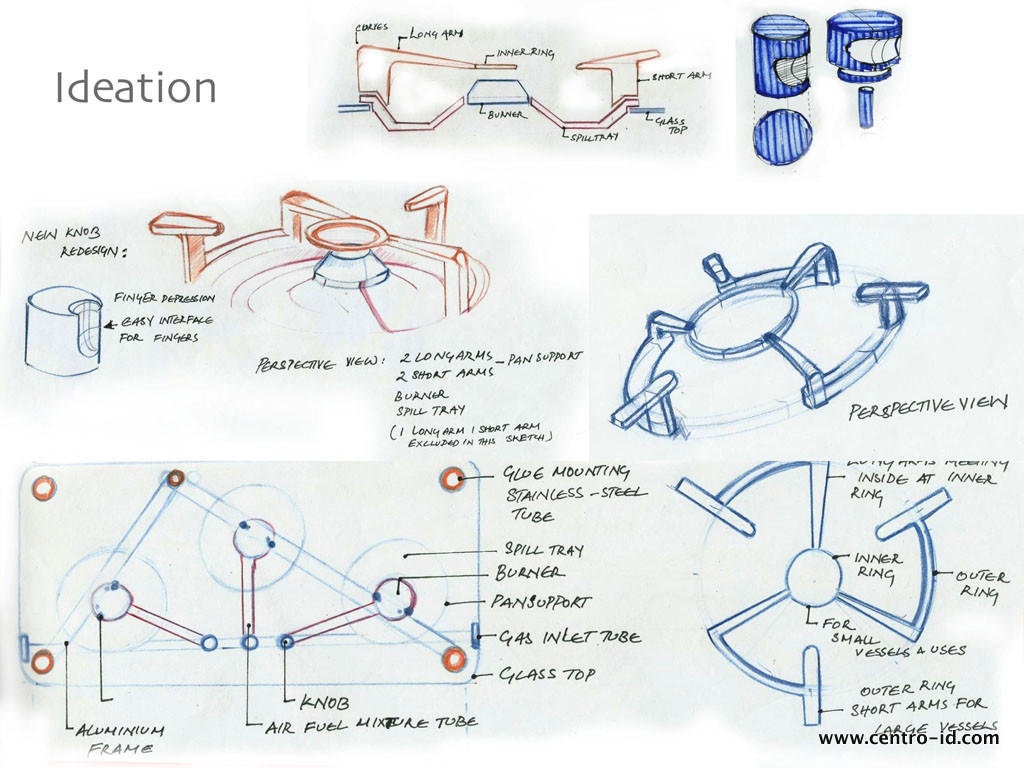 Ideation
CURVES
LONG ARM
INNER RING
SHORT ARM
BURNER
GLASS
TOP
SPILLTRAY
NEW KNOB
REDESIGN:
FINGER DEPRESSION
EASY INTERFACE
FOR FINGERS
PERSPECTIVE VIEW: 2 LONG ARMS - PAN SUPPORT
2 SHORT ARMS
BURNER
SPILL TRAY
(1 LONG ARM 1 SHORT ARM
EXCLUDED IN THIS SKETCH)
PERSPECTIVE VIEW
GLUE MOUNTING
STAINLESS-STEEL
TUBE
SPILL TRAY
BURNER
PANSUPPORT
GAS INLET TUBE
GLASS TOP
KNOB
AIR FUEL MIXTURE TUBE
ALUMINIUM
FRAME
LONG ARMS MEETING
INSIDE AT INNER
RING
INNER
RING
OUTER
RING
FOR
SMALL
VESSELS & USES
OUTER RING
SHORT ARMS FOR
LARGE VESSELS
www.centro-id.com